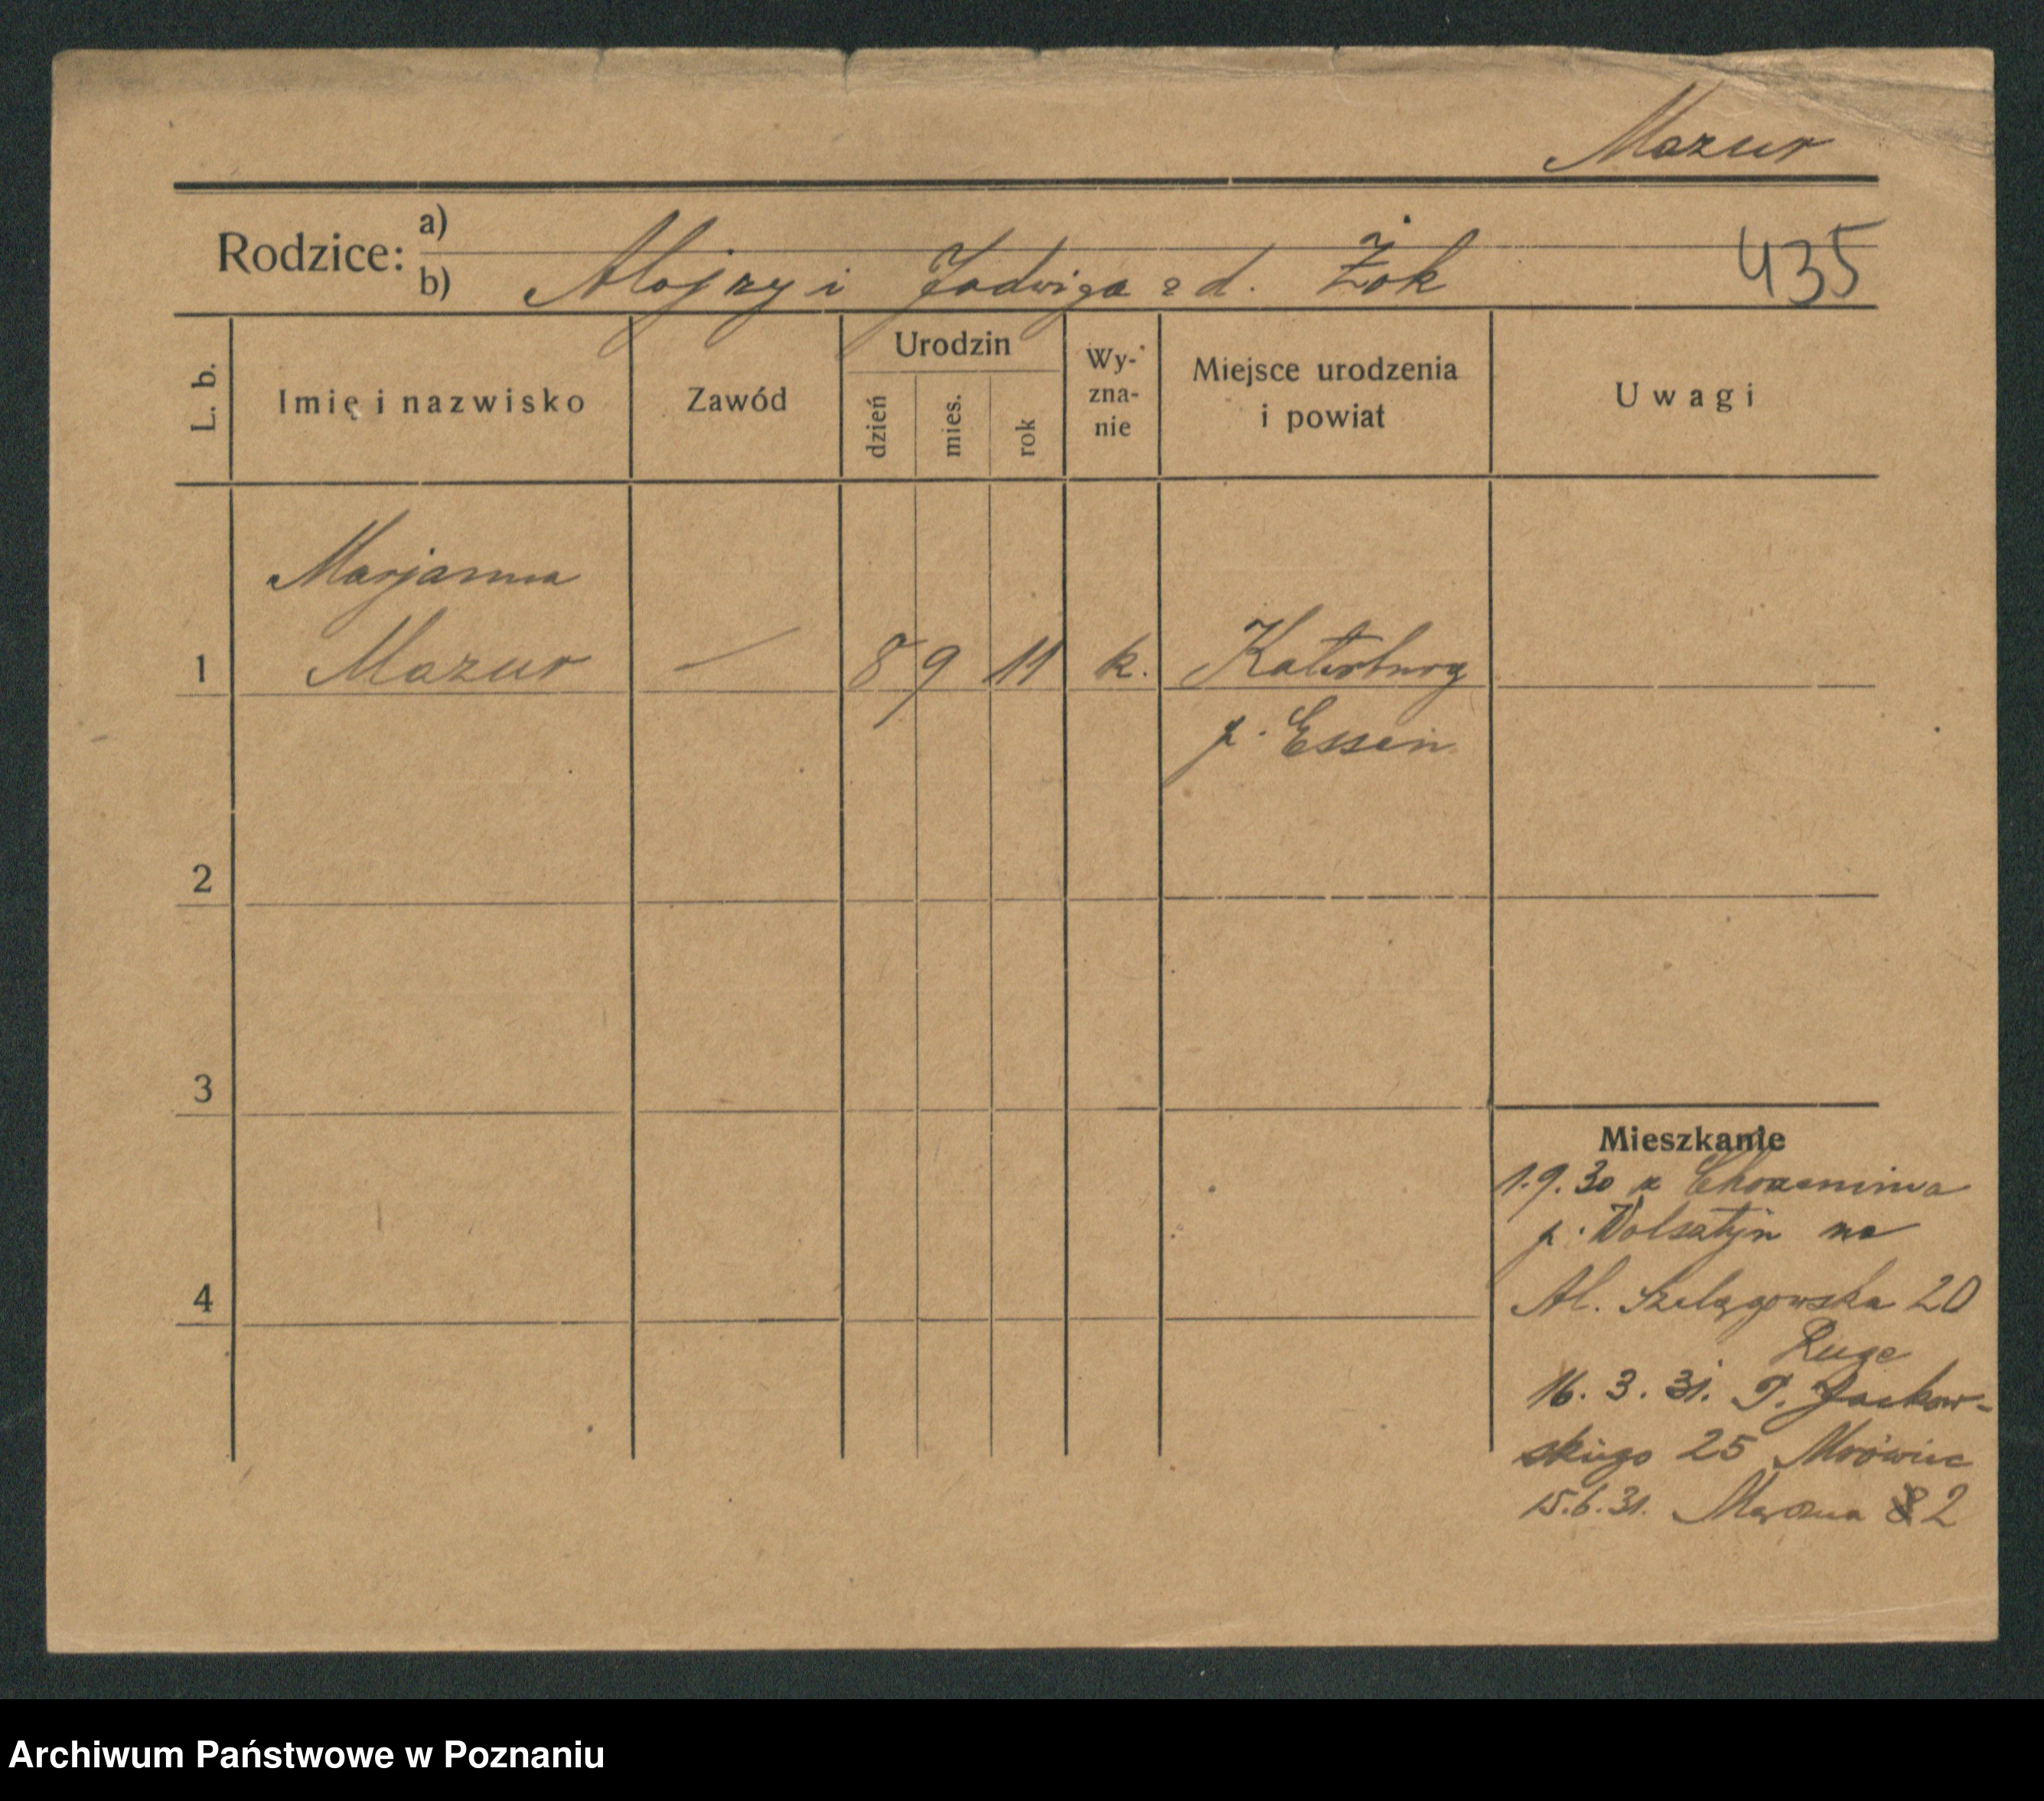 Mazur
Rodzice: a)
b) Alojzy i Jadwiga z d. Żok 435
L. b. Imię i nazwisko Zawód Urodzin dzień mies. rok Wy-zna-nie Miejsce urodzenia i powiat Uwagi
Marjanna
1 Mazur — 8 9 11 k. Katernburg
p. Essen
2
3
Mieszkanie
1.9.30 z
p. Wolsztyn na
4 Al. Szelągowska 20
Ruge
16. 3. 31. P. Jackow-
skiego 25 Mrówiec
15.6.31. 2
Archiwum Państwowe w Poznaniu